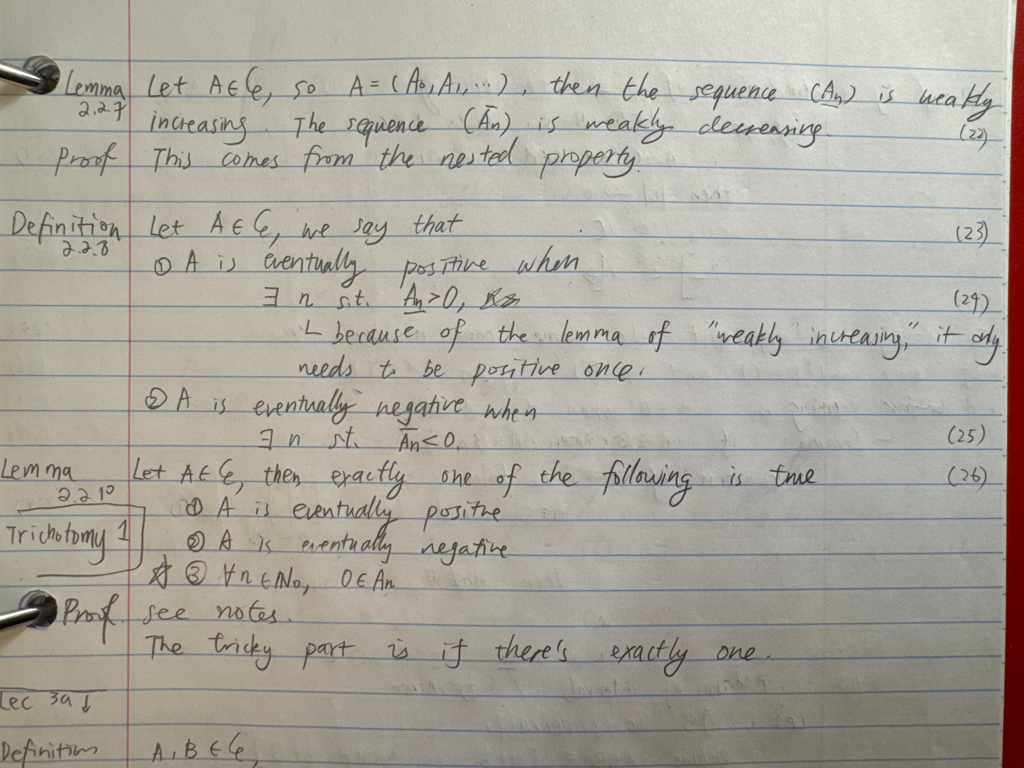 Lemma 2.2.7 Let A ∈ 𝒞, so A = (A₀, A₁, ...), then the sequence (A̲n) is weakly
increasing. The sequence (A̅n) is weakly decreasing. (22)
Proof This comes from the nested property.
Definition 2.2.8 Let A ∈ 𝒞, we say that (23)
① A is eventually positive when
∃ n s.t. A̲n > 0, (24)
└ because of the lemma of "weakly increasing," it only
needs to be positive once.
② A is eventually negative when
∃ n st. A̅n < 0. (25)
Lemma 2.2.10 Let A ∈ 𝒞, then exactly one of the following is true (26)
① A is eventually positive
Trichotomy 1
② A is eventually negative
☆ ③ ∀n ∈ ℕ₀, 0 ∈ An
Proof. see notes.
The tricky part is if there's exactly one.
Lec 3a ↓
Definition A, B ∈ 𝒞,